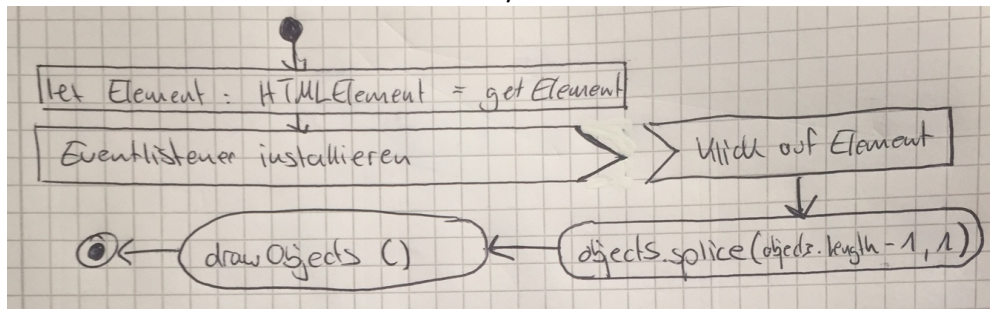 let Element : HTMLElement = getElement
Eventlistener installieren
Klick auf Element
objects.splice(objects.length - 1, 1)
drawObjects ()